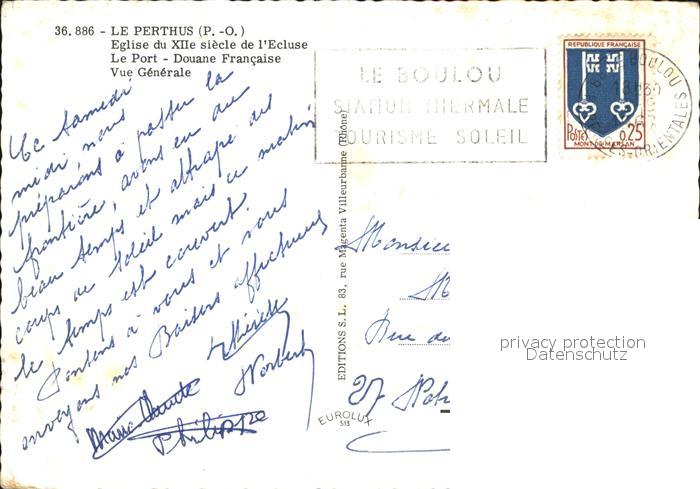 36. 886 - LE PERTHUS (P. -O.)
Eglise du XIIe siècle de l'Ecluse
Le Port - Douane Française
Vue Générale
LE BOULOU
STATION THERMALE
TOURISME SOLEIL
REPUBLIQUE FRANÇAISE
POSTES 0,25
MONT-DE-MARSAN
LE BOULOU
PYRENEES-ORIENTALES
Ce Samedi
midi, nous
préparons à passer la
frontière, avons eu du
beau temps et attrapé des
coups de soleil mais ce matin
le temps est couvert.
Pensons à vous et vous
envoyons nos Baisers affectueux
Thérèse
Norbert
Marie
Philippe
EDITIONS S.L., 83, rue Magenta Villeurbanne (Rhône)
EUROLUX
Monsieu
M
Rue du
27
privacy protection
Datenschutz